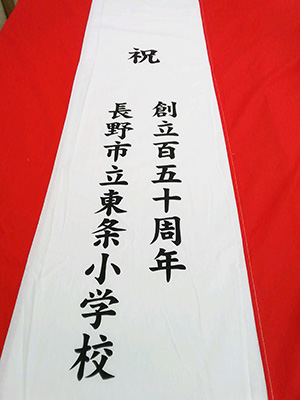 祝
創立百五十周年
長野市立東条小学校